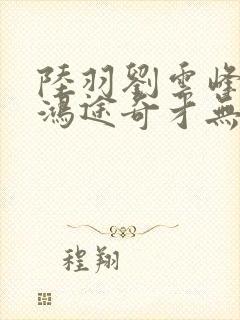 陸羽劉雲峰
鴻途奇才無
程翔